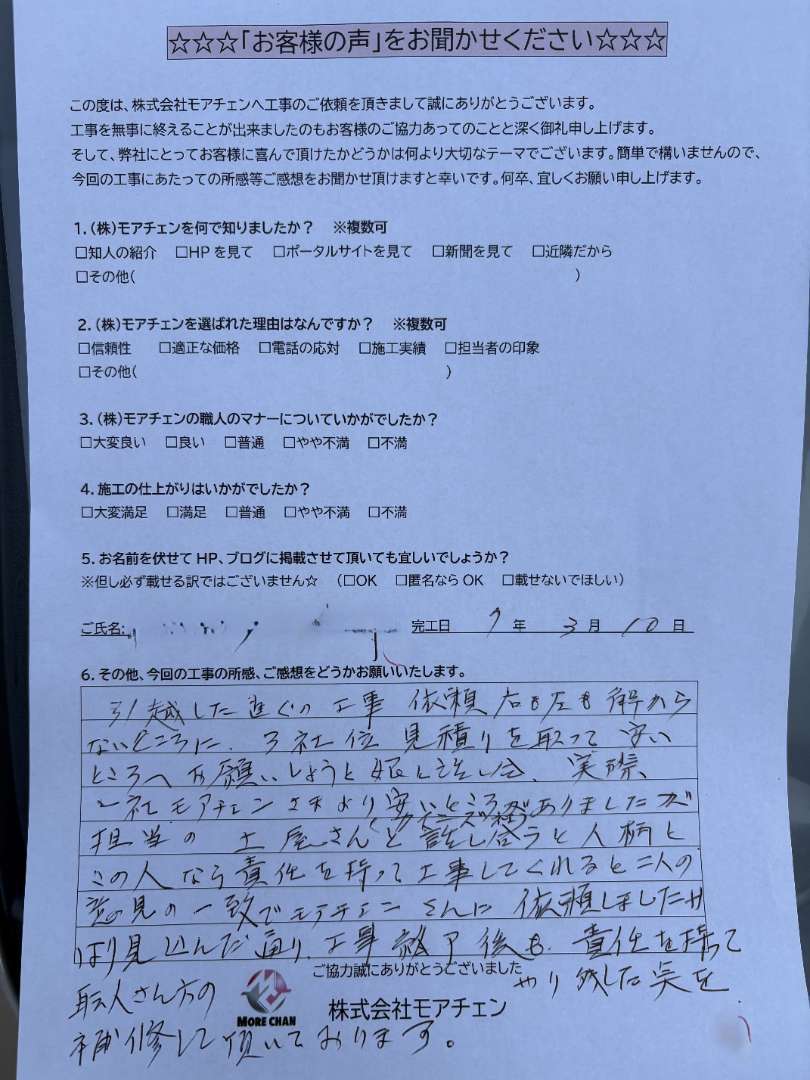 ☆☆☆「お客様の声」をお聞かせください☆☆☆
この度は、株式会社モアチェンへ工事のご依頼を頂きまして誠にありがとうございます。
工事を無事に終えることが出来ましたのもお客様のご協力あってのことと深く御礼申し上げます。
そして、弊社にとってお客様に喜んで頂けたかどうかは何より大切なテーマでございます。簡単で構いませんので、
今回の工事にあたっての所感等ご感想をお聞かせ頂けますと幸いです。何卒、宜しくお願い申し上げます。
1.(株)モアチェンを何で知りましたか？ ※複数可
□知人の紹介 □HPを見て □ポータルサイトを見て □新聞を見て □近隣だから
□その他( )
2.(株)モアチェンを選ばれた理由はなんですか？ ※複数可
□信頼性 □適正な価格 □電話の応対 □施工実績 □担当者の印象
□その他( )
3.(株)モアチェンの職人のマナーについていかがでしたか？
□大変良い □良い □普通 □やや不満 □不満
4.施工の仕上がりはいかがでしたか？
□大変満足 □満足 □普通 □やや不満 □不満
5.お名前を伏せてHP、ブログに掲載させて頂いても宜しいでしょうか？
※但し必ず載せる訳ではございません☆ (□OK □匿名ならOK □載せないでほしい)
ご氏名: 完工日 7年 3月 10日
6.その他、今回の工事の所感、ご感想をどうかお願いいたします。
引越した直ぐの工事依頼右も左も解から
ないところに、3社位見積りを取って安い
ところへお願いしようと娘と話し合、実際、
一社モアチェンさまより安いところがありましたが
担当の土屋さんと話し合うと人柄と
この人なら責任を持って工事してくれると二人の
意見の一致でモアチェンさんに依頼しましたが
やはり見込んだ通り、工事終了後も、責任を持って
職人さん方の やり残した実を
補修して頂いております。
ご協力誠にありがとうございました
MORE CHAN
株式会社モアチェン